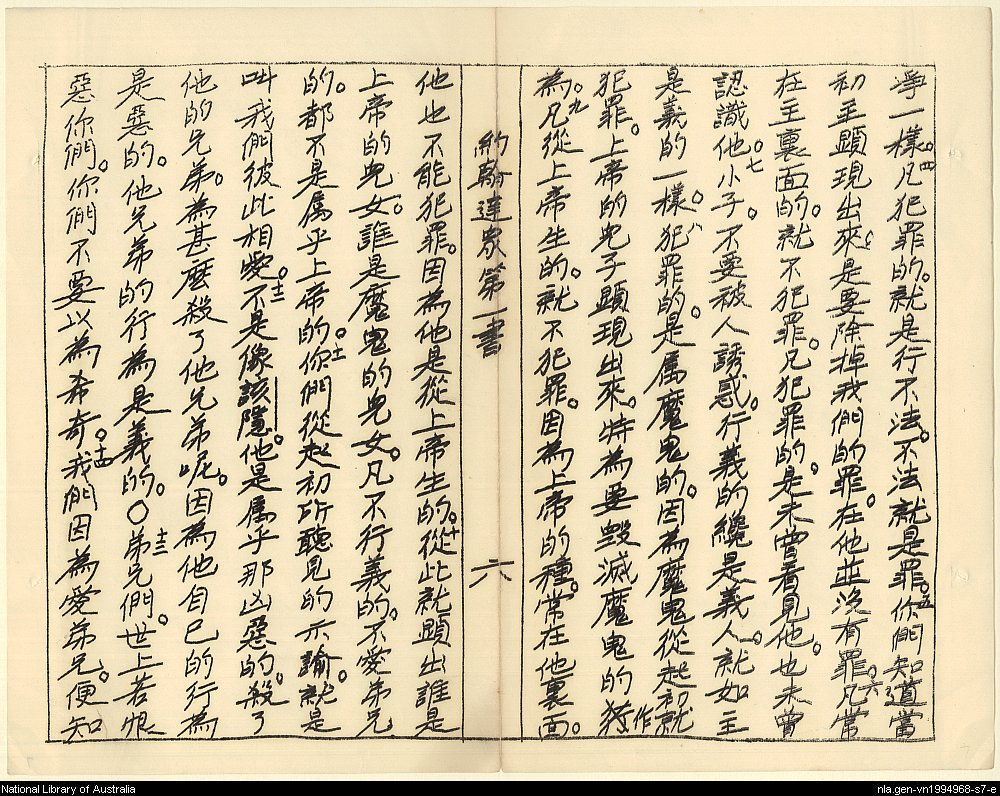 淨一樣。四凡犯罪的。就是行不法。不法就是罪。五你們知道當
初主顯現出來。是要除掉我們的罪。在他並沒有罪。六凡常
在主裏面的。就不犯罪。凡犯罪的。是未曾看見他。也未曾
認識他。七小子。不要被人誘惑。行義的纔是義人。就如主
是義的一樣。八犯罪的。是属魔鬼的。因為魔鬼從起初就
犯罪。上帝的兒子顯現出來。特為要毀滅魔鬼的作
為。九凡從上帝生的。就不犯罪。因為上帝的種。常在他裏面。
約翰達眾第一書 六
他也不能犯罪。因為他是從上帝生的。十從此就顯出誰是
上帝的兒女。誰是魔鬼的兒女。凡不行義的。不愛弟兄
的。都不是属乎上帝的。十一你們從起初所聽見的示諭。就是
叫我們彼此相愛。十二不是像該隱。他是属乎那凶惡的。殺了
他的兄弟。為甚麼殺了他兄弟呢。因為他自己的行為
是惡的。他兄弟的行為是義的。〇十三弟兄們。世上若恨
惡你們。你們不要以為希奇。十四我們因為愛弟兄、便知
National Library of Australia
nla.gen-vn1994968-s7-e